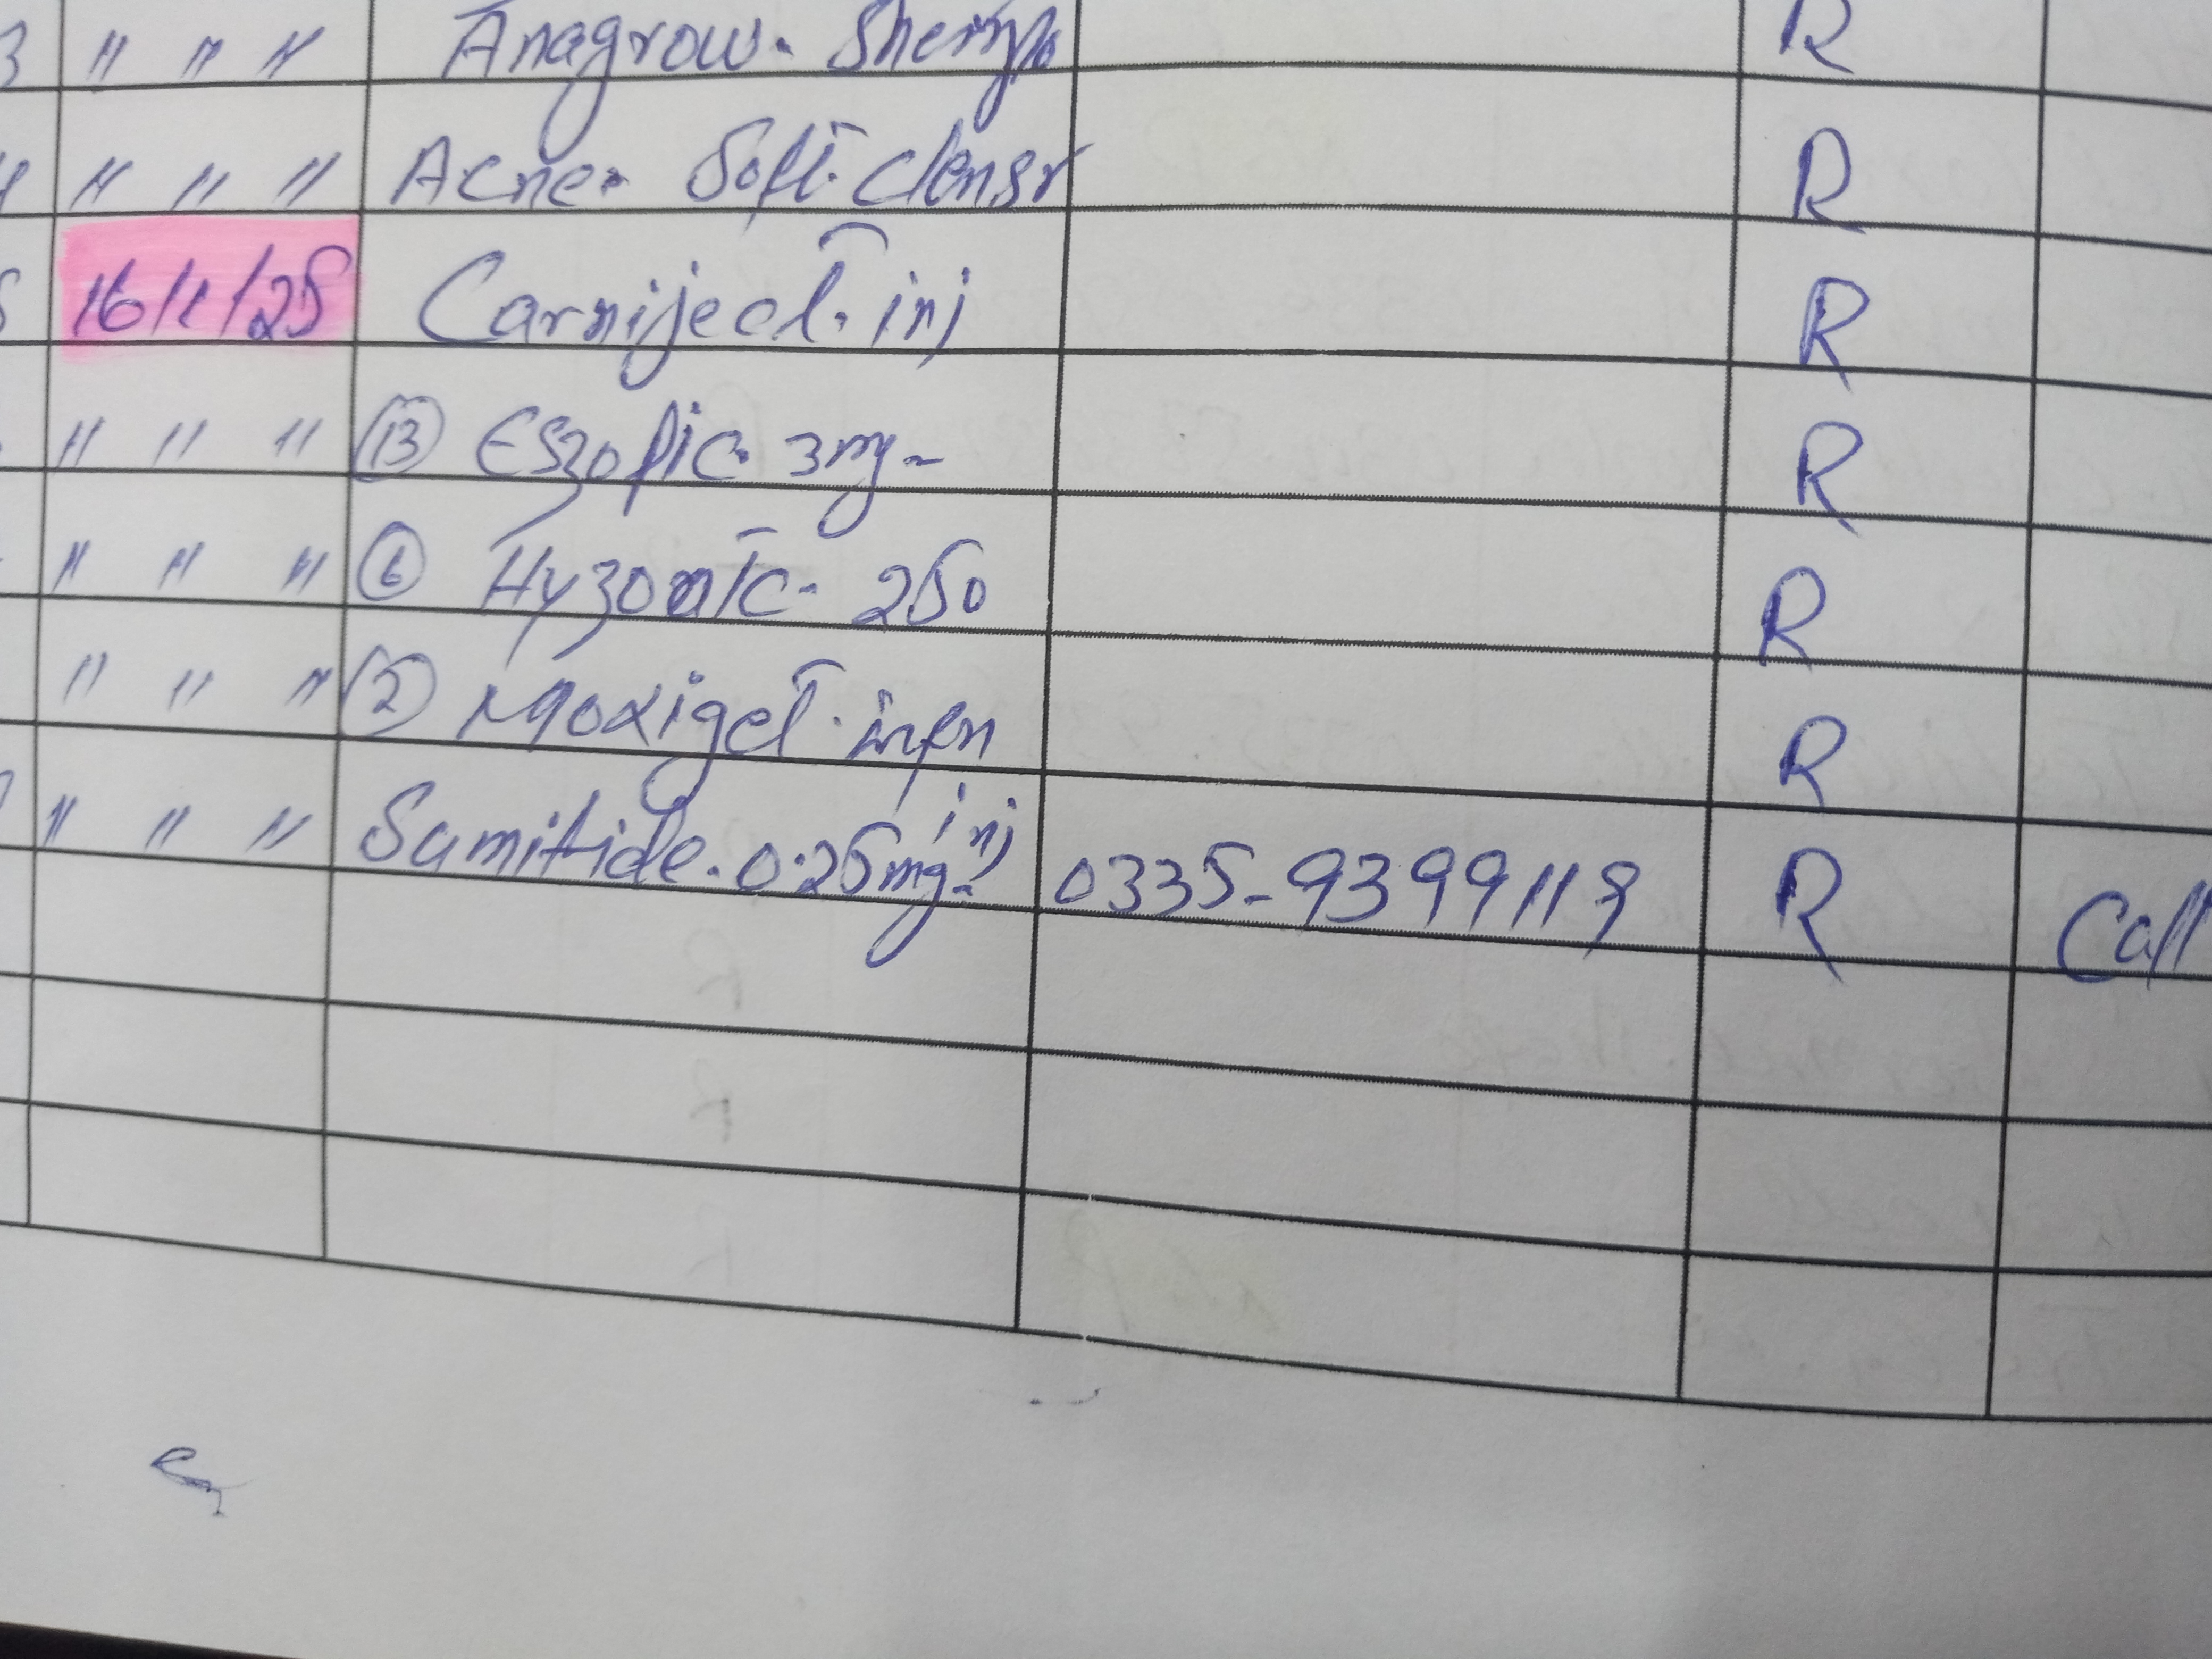 3 " " " Anagrow. Shempo R
4 " " " Acne. Soft. Clensr R
5 16/1/25 Carniject. inj R
" " " (13) Eszopic. 3mg- R
" " " (6) Hyzonic. 250 R
" " " (2) Moxiget. infn R
" " " Samitide. 0.25mg inj 0335-9399119 R Call